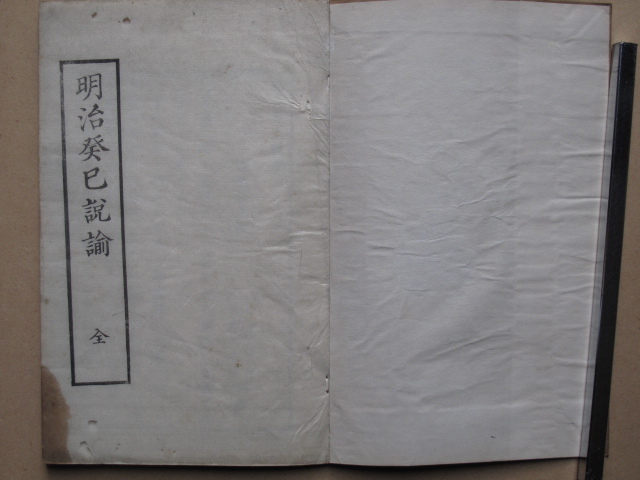 明治癸巳說諭
全